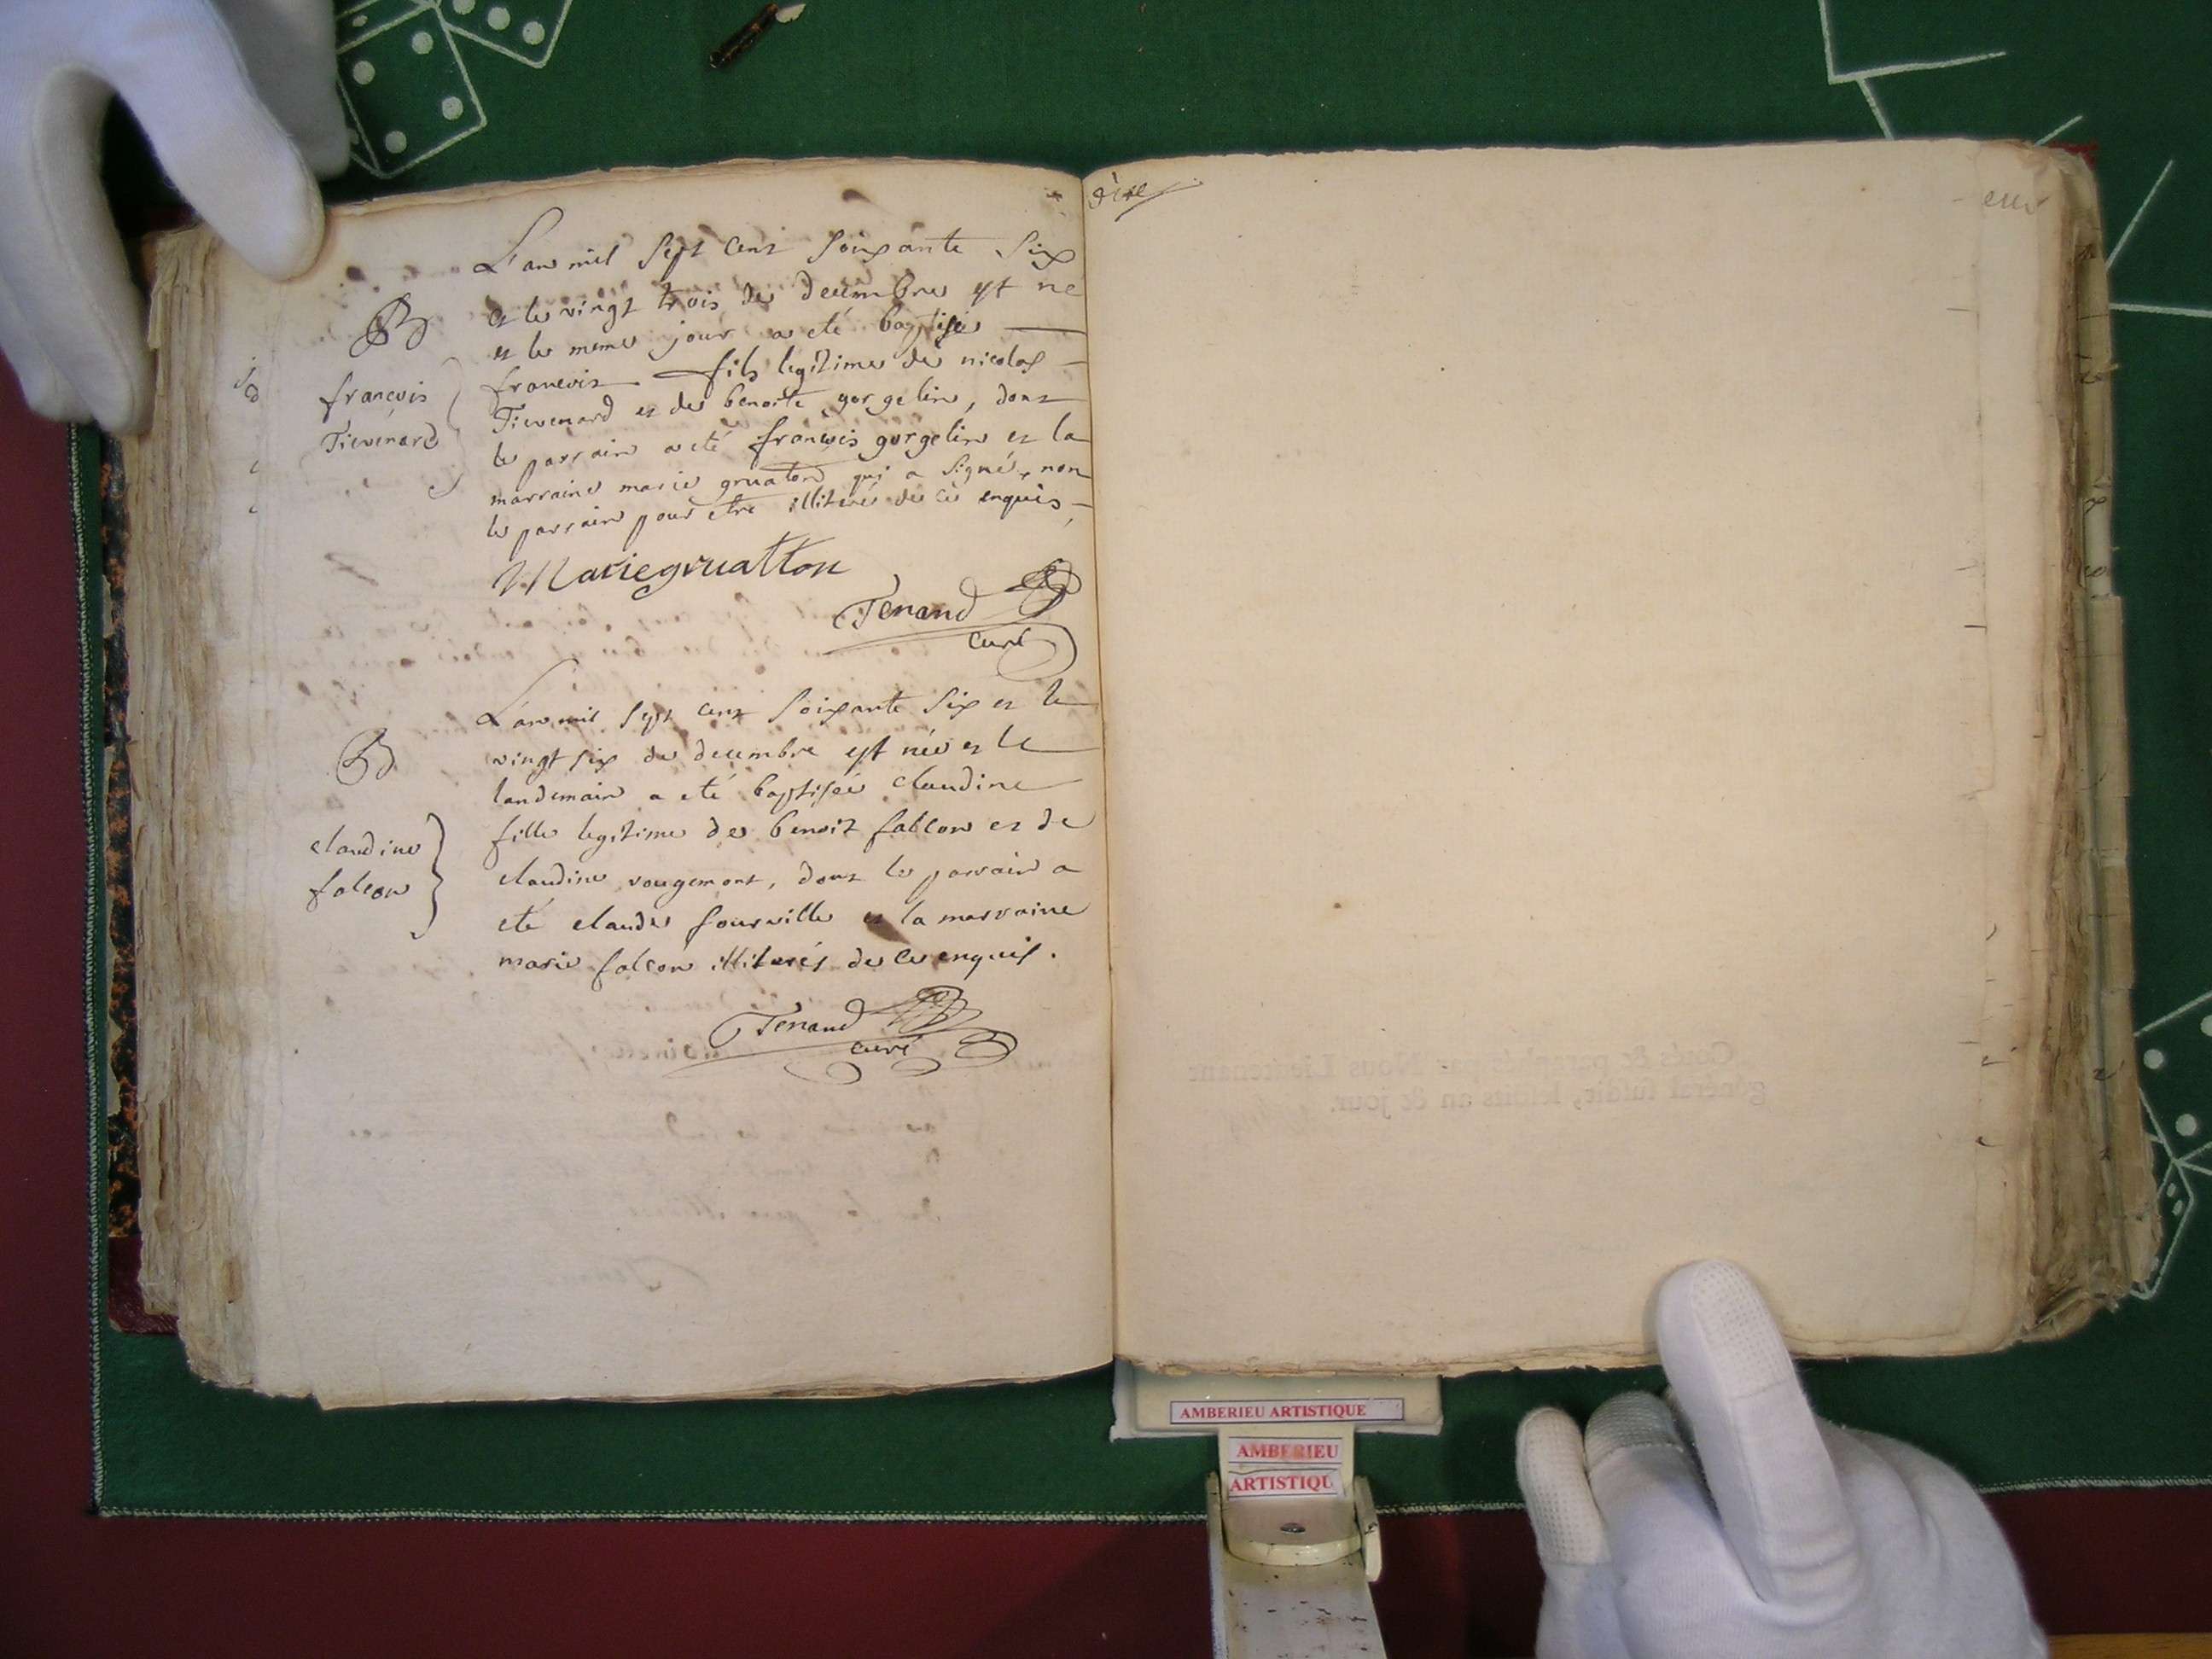 L'an mil sept cent soixante six
et le vingt trois de decembre est ne
et le meme jour a eté baptisé
françois fils legitime de nicolas
Tievenard et de benoite gorgelin, dont
le parrain a eté françois gorgelin et la
marraine marie gruaton qui a signé, non
le parrain pour etre illiteré de ce enquis,
B
françois
Tievenard
Marie gruatton
Tenand
curé
L'an mil sept cent soixante six et le
vingt six de decembre est née et le
landemain a eté baptisée claudine
fille legitime de benoit falcon et de
claudine rougemont, dont le parrain a
eté claude fourville et la marraine
marie falcon illiterés de ce enquis.
B
claudine
falcon
Tenand
curé
Cotés & paraphés par Nous Lieutenant
général susdit, lesdits an & jour.
AMBERIEU ARTISTIQUE
AMBERIEU
ARTISTIQU